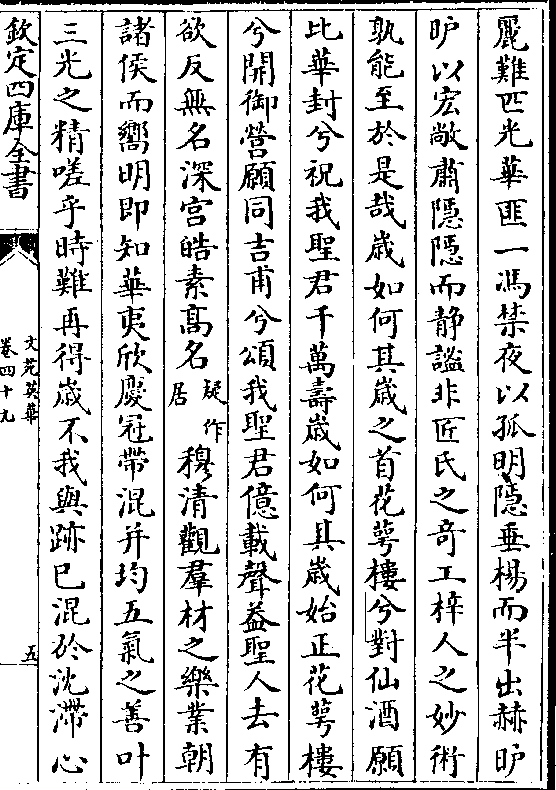 麗難匹光華匪一馮禁夜以孤明隱垂楊而半出赫昈
昈以宏敞肅隱隱而静謐非匠氏之奇工梓人之妙術
孰能至於是哉嵗如何其嵗之首花萼樓兮對仙酒願
比華封兮祝我聖君千萬壽嵗如何其嵗始正花萼樓
兮開御營願同吉甫兮頌我聖君億載聲益聖人去有
欲反無名深宫皓素髙名疑作居穆清觀羣材之樂業朝
諸侯而嚮明即知華夷欣慶冠帶混并均五氣之善叶
三光之精嗟乎時難再得嵗不我與跡已混於沈滯心
欽定四庫全書
文苑英華
卷四十九
五